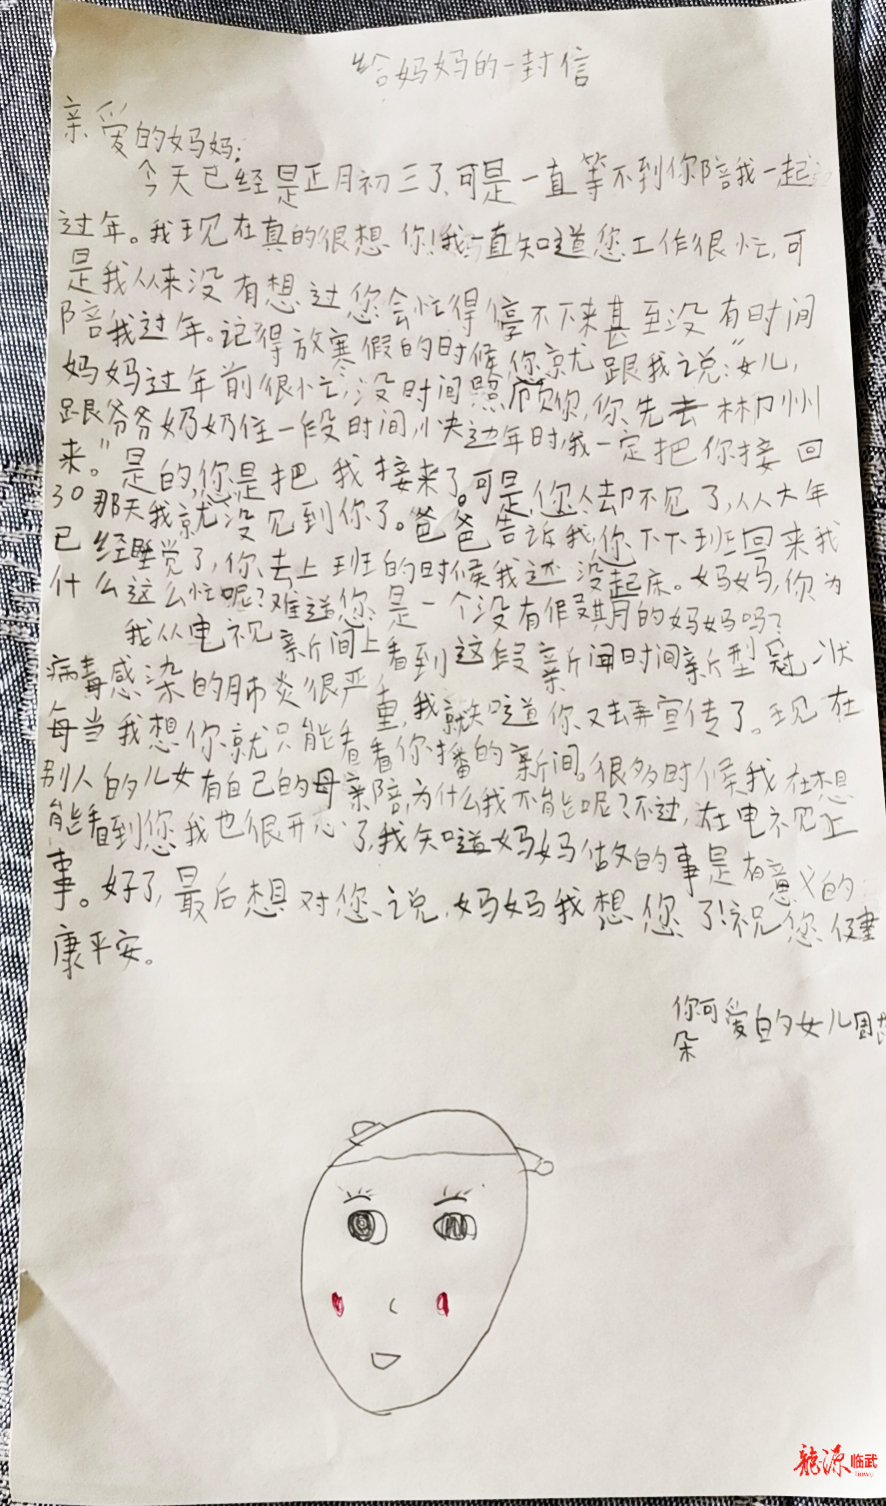 给妈妈的一封信
亲爱的妈妈:
今天已经是正月初三了,可是一直等不到你陪我一起
过年。我现在真的很想你!我一直知道您工作很忙,可
是我从来没有想过您会忙得停不下来甚至没有时间
陪我过年。记得放寒假的时候你就跟我说:“女儿,
妈妈过年前很忙,没时间照顾你,你先去郴州
跟爷爷奶奶住一段时间,快过年时,我一定把你接回
来。”是的,您是把我接来了。可是,您却不见了,从大年
30那天我就没见到你了。爸爸告诉我,您下下班回来我
已经睡觉了,你去上班的时候我还没起床。妈妈,你为
什么这么忙呢?难道您是一个没有假期的妈妈吗?
我从电视新闻上看到这段新闻时间新型冠状
病毒感染的肺炎很严重,我就知道你又去弄宣传了。现在
每当我想你就只能看看你播的新闻。很多时候我在想
别人的儿女有自己的母亲陪,为什么我不能呢?不过,在电视上
能看到您我也很开心了,我知道妈妈做的事是有意义的
事。好了,最后想对您说,妈妈我想您了!祝您健
康平安。
你可爱的女儿周
朵
龍源临武